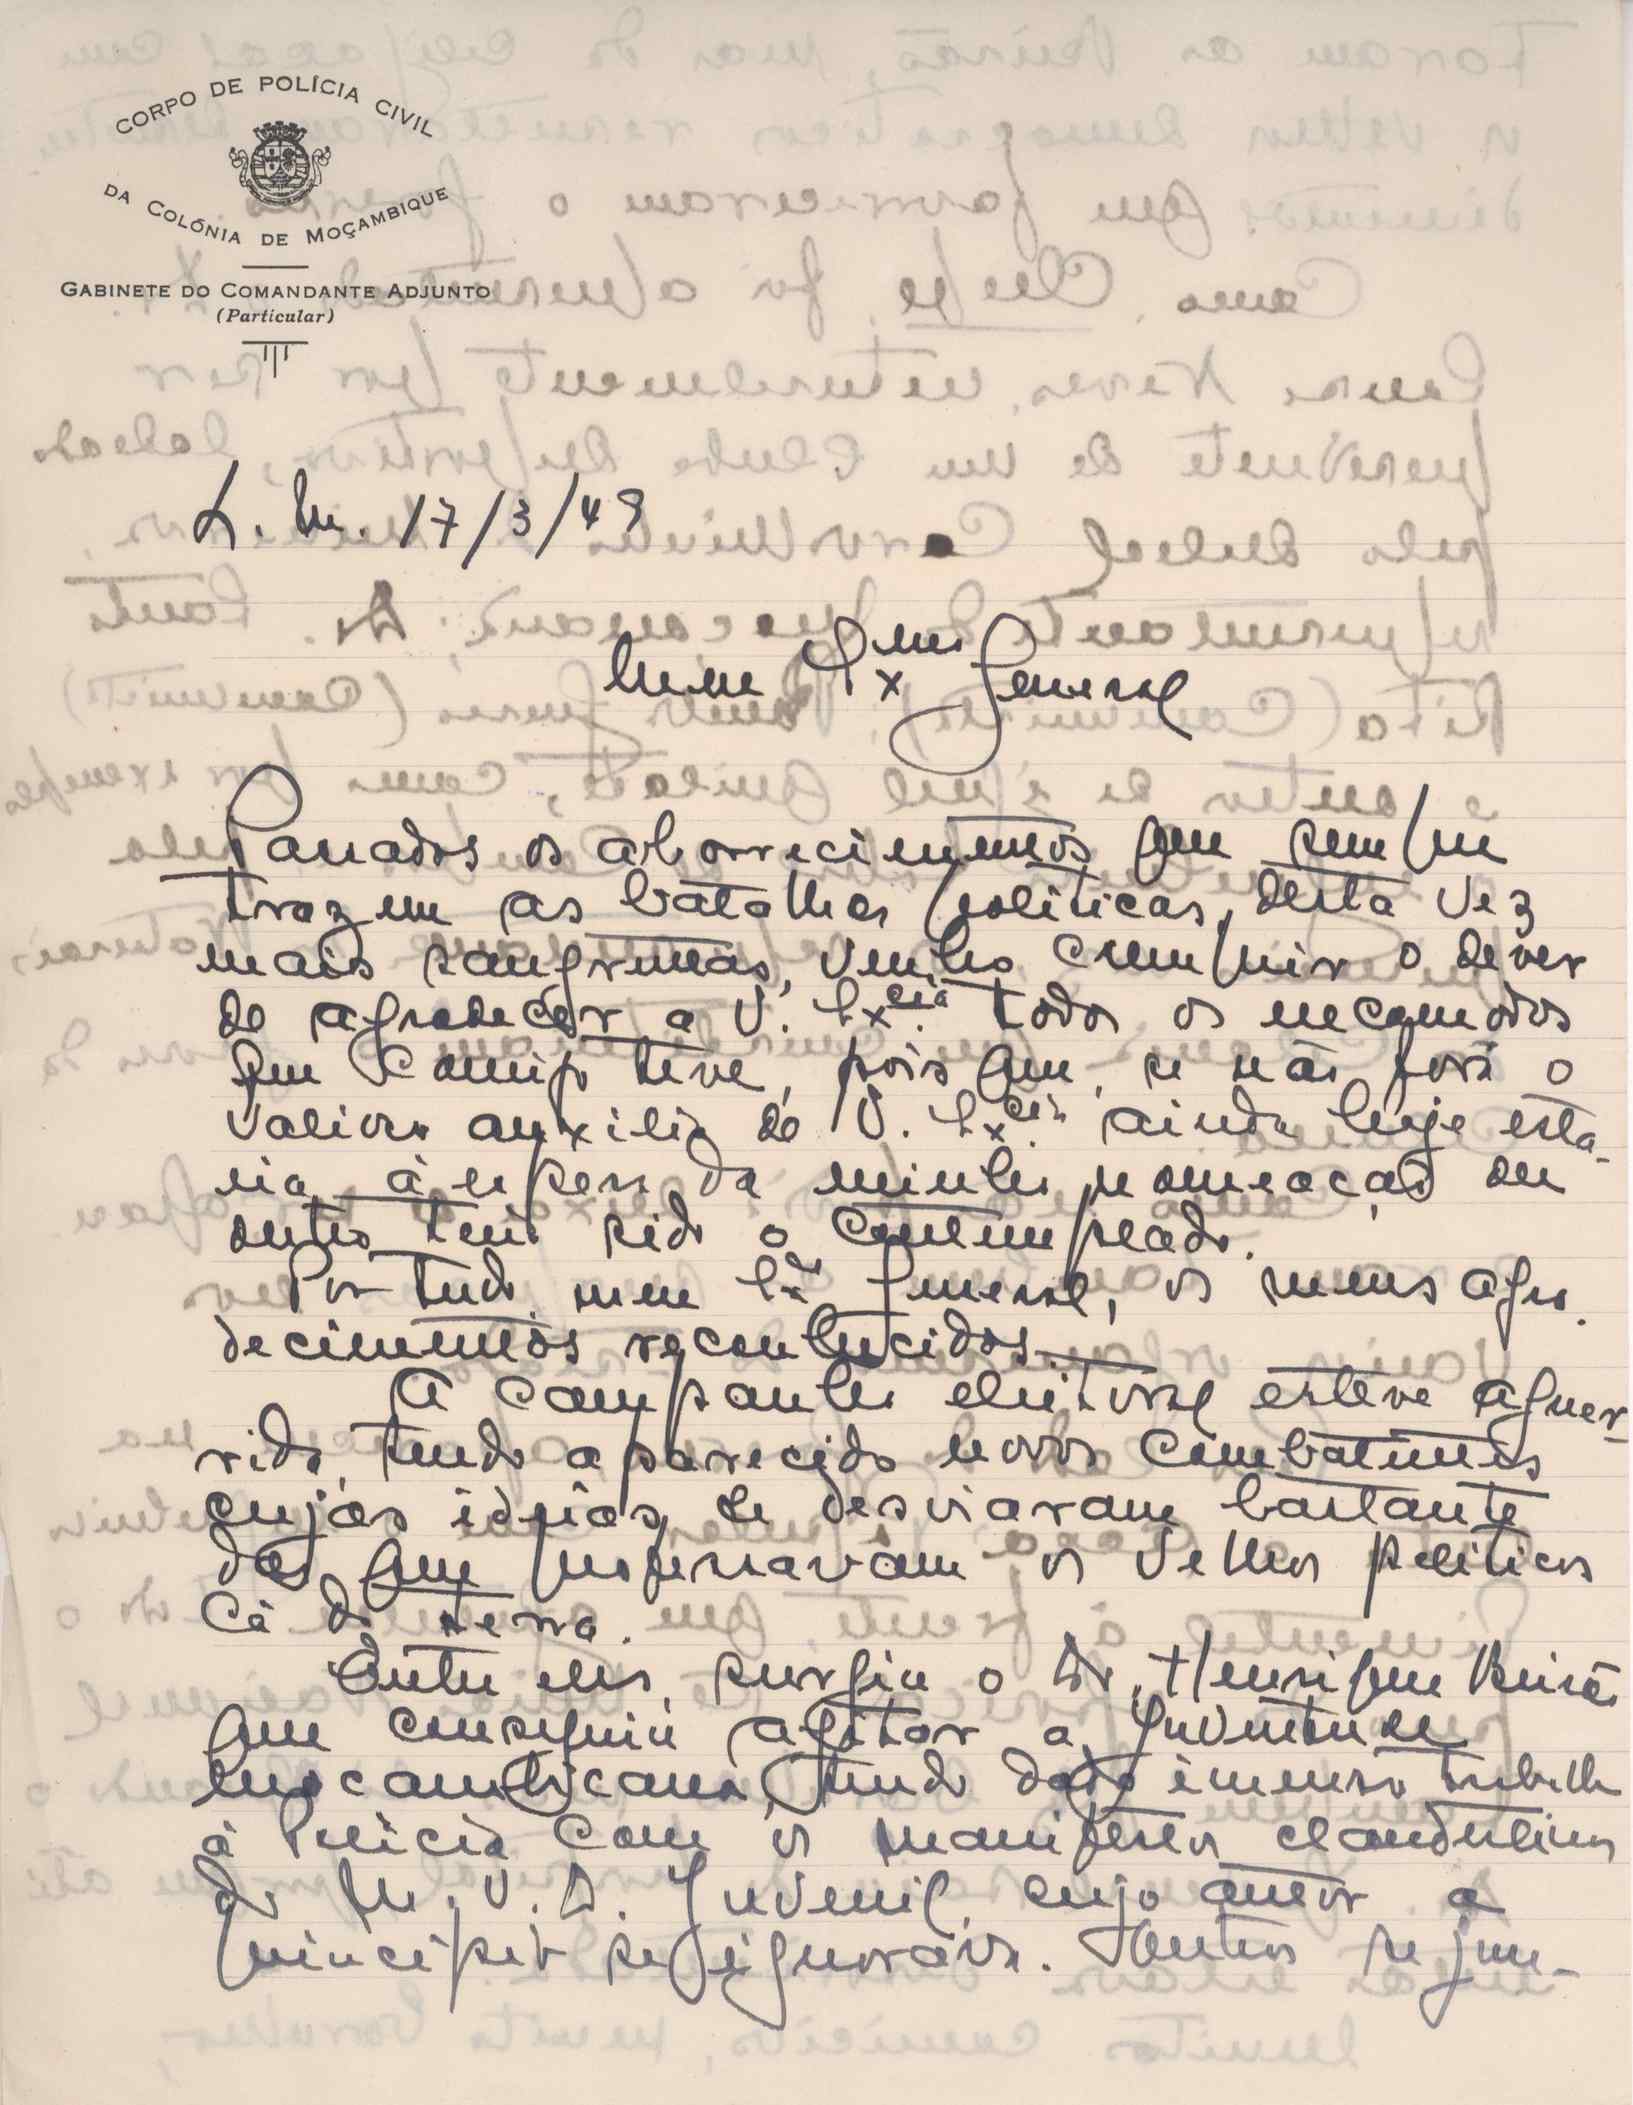 CORPO DE POLÍCIA CIVIL
DA COLÓNIA DE MOÇAMBIQUE
GABINETE DO COMANDANTE ADJUNTO
(Particular)
L. M. 17/3/49
Meu Exmo General
Passados os aborrecimentos que sempre
trazem as batalhas políticas, desta vez
mais sangrentas, venho cumprir o dever
de agradecer a V. Excia todos os incomodos
que comigo teve, pois que, se não fora o
valioso auxilio de V. Excia ainda hoje esta-
ria á espera da minha nomeação ou
outro teria sido o contemplado.
Por tudo, meu Exo General, os meus agra-
decimentos reconhecidos.
A campanha eleitoral esteve aguer-
rida, tendo aparecido novos combatentes
cujas idéias se desviaram bastante
das que professavam os velhos politicos
cá da terra.
Entre eles, surgiu o Dr. Henrique Beirão
que conseguiu agitar a Juventude
Moçambicana, tendo dado imenso trabalho
á Policia com os manifestos clandestinos
do M. U. D. Juvenil, cujo autor a
principio se ignorava. Outros se jun-